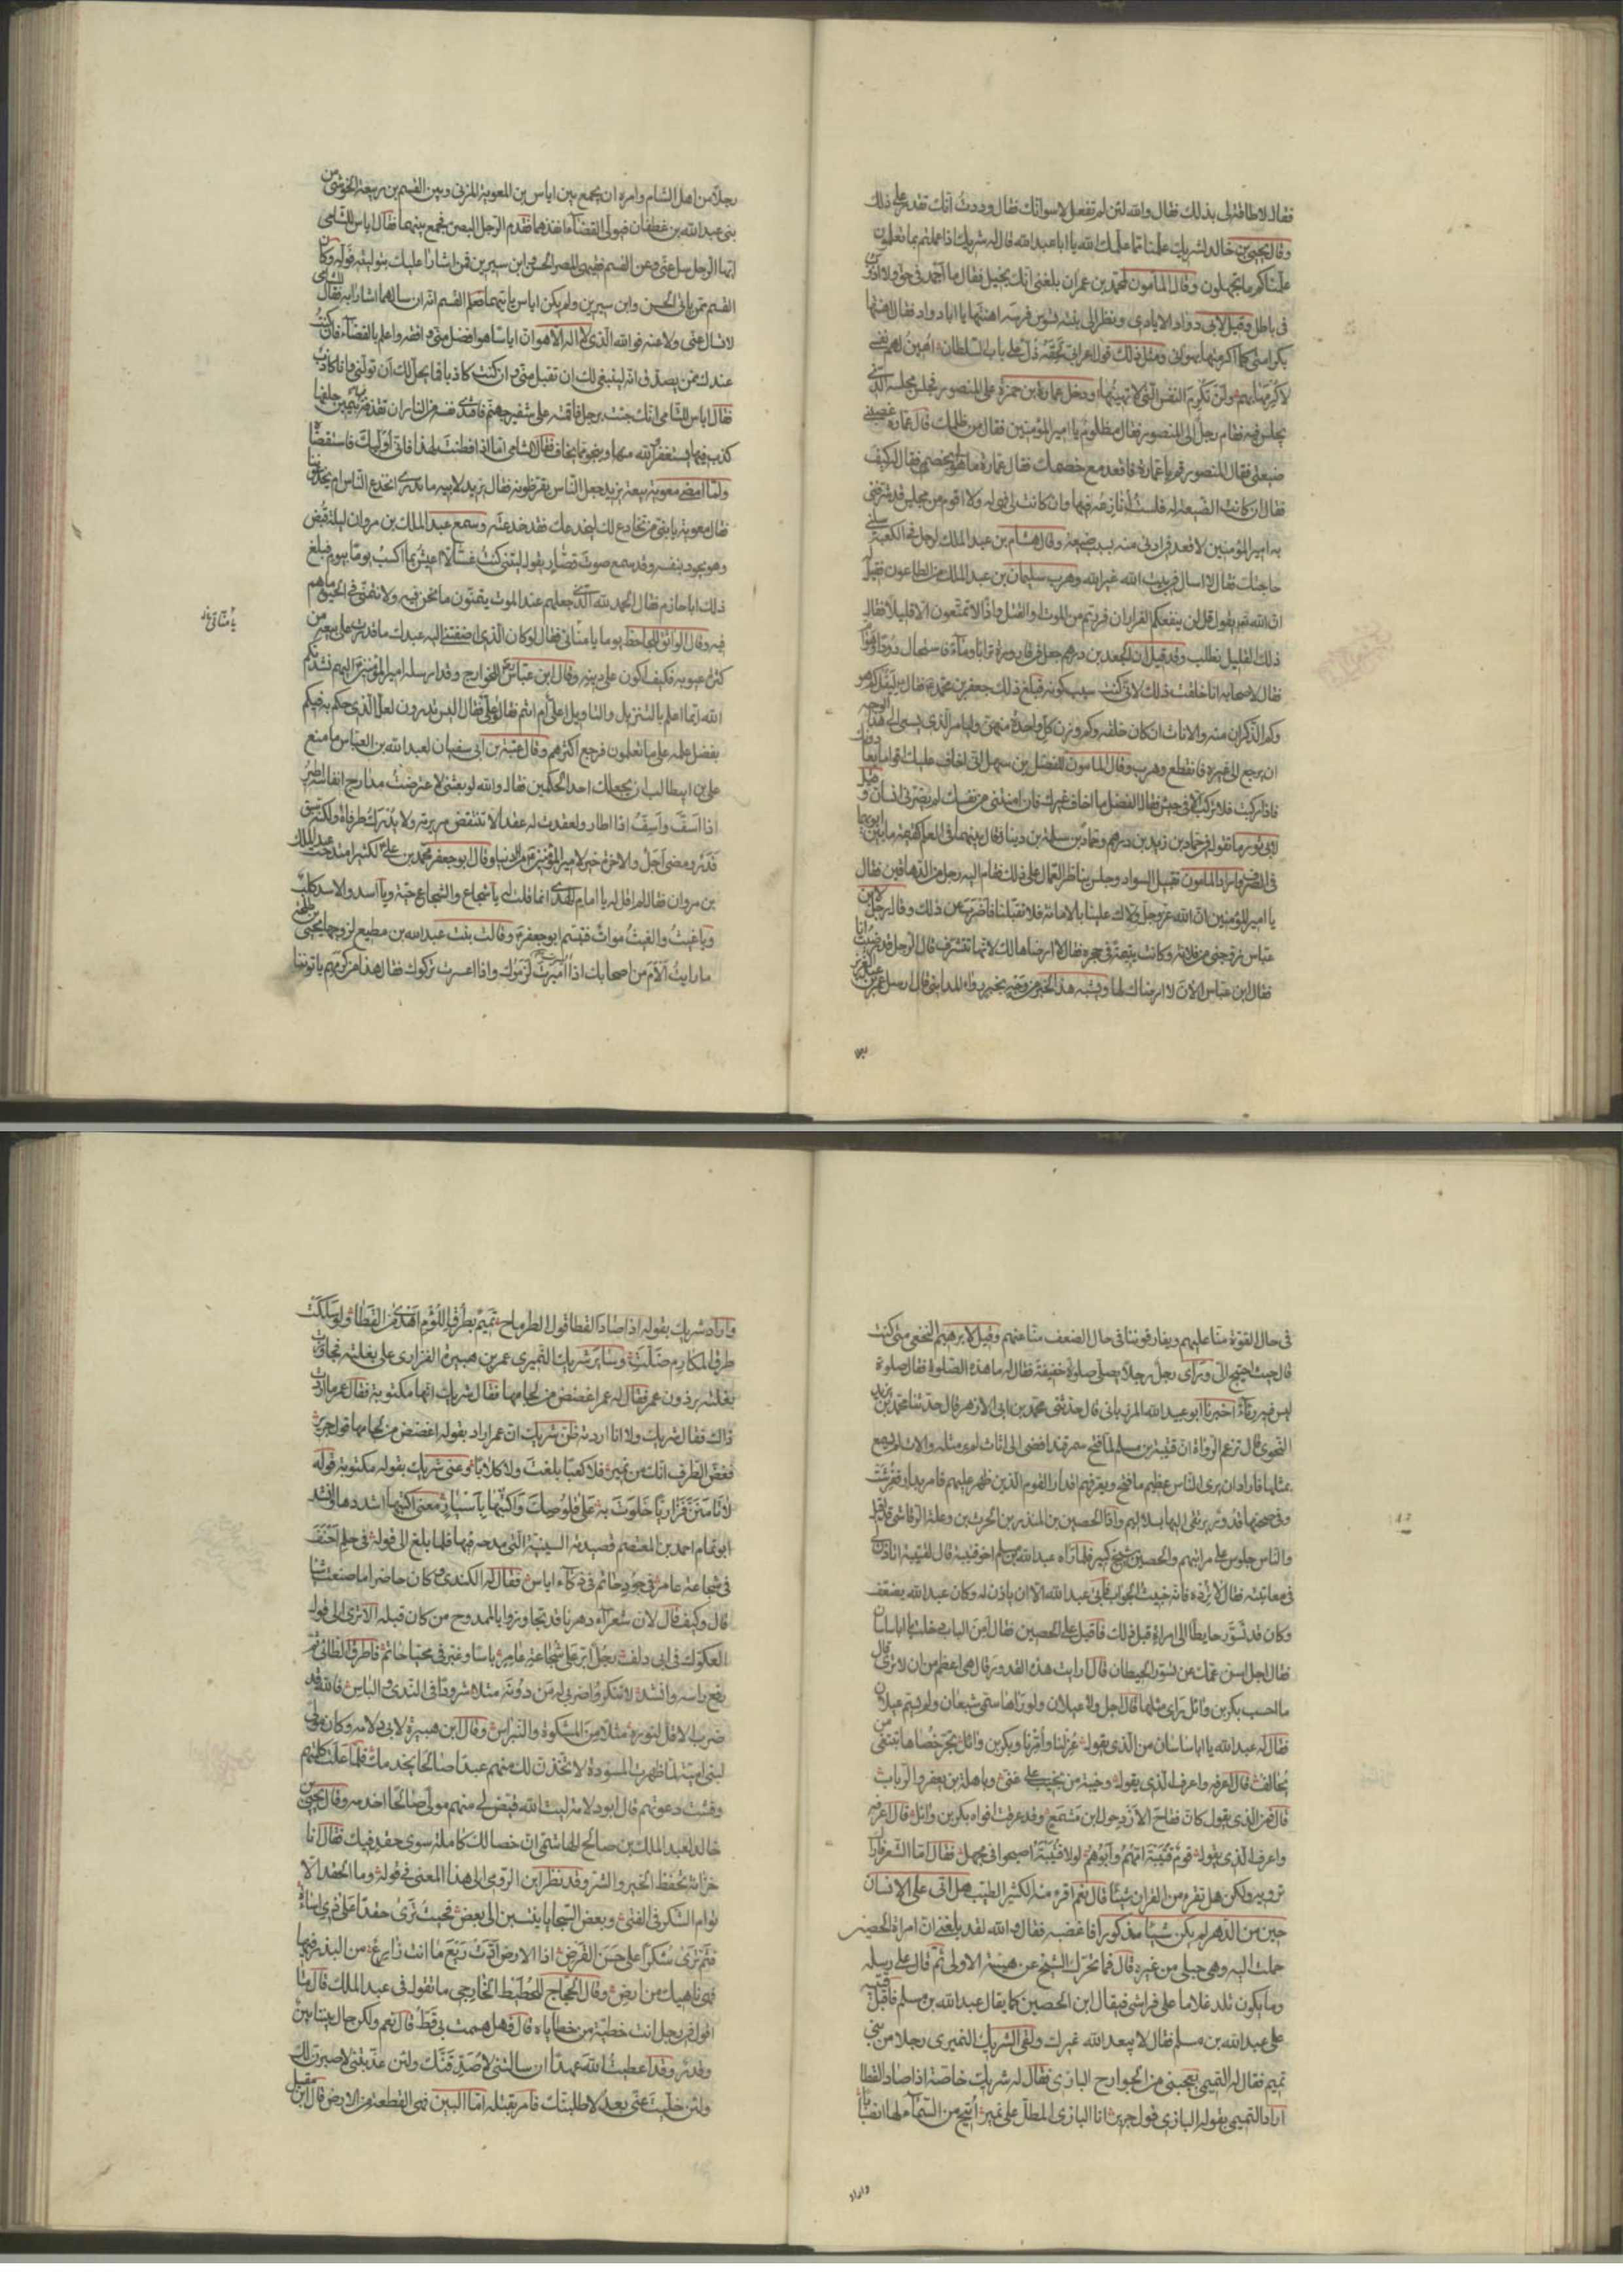 فقال لا طاقة لى بذلك فقال والله لئن لم تفعل لاسوانك فقال وددت انك تقدر على ذلك
وقال يحيى بن خالد لشريك علمنا مما علمك الله يا ابا عبد الله قال له شريك اذا عملتم بما تعلمون
علمناكم ما تجهلون وقال المأمون لمحمد بن عمران بلغنى انك بخيل فقال ما اجمد فى حق ولا اذوب
فى باطل وقيل لابى دواد الايادى ونظر الى بنته تسوس فرسه اهنتها يا ابا دواد فقال اهنتها
بكرامتى كما اكرمتها بهوانى ومثل ذلك قول اعرابى لحقه ذل على باب السلطان اهين لهم نفسى
لاكرمها بهم ولن تكرم النفس التى لا تهينها ودخل عمارة بن حمزة على المنصور فجلس مجلسه الذى
يجلس فيه فقام رجل الى المنصور فقال مظلوم يا امير المؤمنين فقال من ظلمك قال عمارة غصبنى
ضيعتى فقال المنصور قم يا عمارة فاقعد مع خصمك فقال عمارة ما هو لى بخصم فقال له كيف
فقال ان كانت الضيعة له فلست انازعه فيها وان كانت لى فهى له ولا اقوم من مجلس قد شرفنى
به امير المؤمنين لاقعد فى ادنى منه بسبب ضيعة وقال هشام بن عبد الملك لرجل فى الكعبة سلنى
حاجتك فقال لا اسال فى بيت الله غير الله وهرب سليمان بن عبد الملك من الطاعون فقيل
ان الله تعالى يقول قل لن ينفعكم الفرار ان فررتم من الموت او القتل واذا لا تمتعون الا قليلا فقال
ذلك القليل نطلب وقد قيل ان الجعد بن درهم جعل فى قارورة ترابا وماء فاستحال دودا وهواما
فقال لاصحابه انا خلقت ذلك لانى كنت سبب كونه فبلغ ذلك جعفر بن محمد فقال ليقل كم هو
وكم الذكران منه والاناث ان كان خلقه وكم وزن كل واحدة منهن وليامر الذى يسعى الى هذا الوجه
ان يرجع الى غيره فانقطع وهرب وقال المامون للفضل بن سهل انى اخاف عليك
فاذا ركبت فلا تركب الا فى جيش فقال الفضل ما اخاف غيرك فان امنتنى من نفسك لم يضرنى انسان وقيل
يا امير المؤمنين ان الله عز وجل ولاك علينا بالامانة فلا تقبلنا فاضرب عن ذلك وقال رجل لابن
عباس زوجنى من فلانة وكانت يتيمة فى حجره فقال لا ارضاها لك لانها تشرف قال الرجل قد رضيت انا
فقال ابن عباس الان لا ارضاك لها ويشبه هذا الخبر من وجه خبر رواه المدائنى قال ارسل عمر بن عبد العزيز
رجلا من اهل الشام وامره ان يجمع بين اياس بن المعوية المزنى وبين القسم بن ربيعة الجوشنى من
بنى عبد الله بن غطفان فيولى القضاء انفذهما فقدم الرجل البصرة فجمع بينهما فقال اياس للشامى
ايها الرجل سل عنى وعن القسم فقيهى المصر الحسن وابن سيرين فمن اشارا عليك بتوليته فوله وكان
القسم ممن ياتى الحسن وابن سيرين ولم يكن اياس ياتيهما فعلم القسم انه ان سالهما اشارا به فقال للشامى
لا تسال عنى ولا عنه فو الله الذى لا اله الا هو ان اياسا هو افضل منى وافقه واعلم بالقضاء فان كنت
عندك ممن يصدق انه لينبغى لك ان تقبل منى وان كنت كاذبا فما يحل لك ان تولينى وانا كاذب
فقال اياس للشامى انك جئت برجل فاقمته على شفير جهنم فافتدى نفسه من النار ان تقذفه فيها بيمين حلفها
كذب فيها يستغفر الله منها وينجو مما يخاف فقال الشامى اما اذ افطنت لهذا فانى اوليك فاستقضاه
ولما امضى معوية بيعة يزيد جعل الناس يقرظونه فقال يزيد لابيه ما ندرى انخدع الناس ام يخدعوننا
فقال معوية يا بنى من تخادع لك ليخدعك فقد خدعته وسمع عبد الملك بن مروان ليلة قبض
وهو يجود بنفسه وقد سمع صوت قصار يقول ليتنى كنت غسالا اعيش بما اكسب يوما بيوم فبلغ
ذلك ابا حازم فقال الحمد لله الذى جعلهم عند الموت يتمنون ما نحن فيه ولا نتمنى فى الحيوة ما هم
فيه وقال الواثق للجاحظ يوما يا منانى فقال لو كان الذى اضفتنى اليه عبدك ما قدرت على بيعه من
كثرة عيوبه فكيف اكون على دينه وقال ابن عباس لبعض الخوارج وقد ارسله امير المؤمنين اليهم نشدتكم
الله ايما اعلم بالتنزيل والتاويل اعلى ام انتم فقالوا على فقال اليس تدرون لعل الذى حكم به فيكم
بفضل علمه على ما تعلمون فرجع اكثرهم وقال عتبة بن ابى سفيان لعبد الله بن العباس ما منع
على بن ابيطالب ان يجعلك احد الحكمين فقال والله لو بعثنى لاعترضت مدارج انفاسه اطير
اذا اسف واسف اذا اطار ولعقدت له عقدا لا تنتقض مريرته ولا يدرك طرفاه ولكنه سبق
قدر ومضى اجل والاخرة خير لامير المؤمنين من الدنيا وقال ابو جعفر محمد بن على لكثير امتدحت عبد الملك
بن مروان فقال لم اقل له يا امام الهدى انما قلت له يا شجاع والشجاع حية ويا اسد والاسد كلب
ويا غيث والغيث موات فتبسم ابو جعفر وقالت بنت عبد الله بن مطيع لزوجها يحيى بن طلحة
ما رايت الام من اصحابك اذا ايسرت لزموك واذا اعسرت تركوك فقال هذا من كرمهم ياتوننا
يا منانى
فى حال القوة منا عليهم ويفارقوننا فى حال الضعف منا عنهم وقيل لابرهيم النخعى متى كنت
قال حيث احتيج الى وراى رجل رجلا يصلى صلوة خفيفة فقال له ما هذه الصلوة فقال صلوة
ليس فيها رياء اخبرنا ابو عبيد الله المرزبانى قال حدثنى محمد بن ابى الازهر قال حدثنا محمد بن يزيد
النحوى قال تزعم الرواة ان قتيبة بن مسلم لما فتح سمرقند افضى الى اثاث لم ير مثله والات لم يسمع
بمثلها فاراد ان يرى الناس عظيم ما فتح ويعرفهم اقدار القوم الذين ظهر عليهم فامر بدار ففرشت
وفى صحنها قدور يرتقى اليها بسلاليم واذا الحصين بن المنذر بن الحرث بن وعلة الرقاشى قد اقبل
والناس جلوس على مراتبهم والحصين شيخ كبير فلما راه عبد الله بن مسلم اخو قتيبة قال لقتيبة اتاذن لى
فى معاتبته فقال لا ترده فانه خبيث الجواب فابى عبد الله الا ان ياذن له وكان عبد الله يضعف
وكان قد تسور حايطا الى امراة قبل ذلك فاقبل على الحصين فقال امن الباب دخلت يا ابا ساسان
فقال اجل اسن عمك عن تسور الحيطان قال ارايت هذه القدور قال هى اعظم من ان لا ترى قال
ما احسب بكر بن وائل راى مثلها قال اجل ولا عيلان ولو راها سمى شبعان ولم يسم عيلان
فقال له عبد الله يا ابا ساسان من الذى يقول عزلنا وامرنا وبكر بن وائل تجر خصاها تبتغى من
تحالف قال اعرفه واعرف الذى يقول وخيبة من يخيب على غنى وباهلة بن يعفر والرباب
قال فمن الذى يقول كان فقاح الازد حول ابن مسمع وقد عرقت افواه بكر بن وائل قال اعرفه
واعرف الذى يقول قوم قتيبة امهم وابوهم لولا قتيبة اصبحوا فى مجهل فقال اما الشعر فاراك
ترويه ولكن هل تقرء من القران شيئا قال نعم اقرء منه الكثير الطيب هل اتى على الانسان
حين من الدهر لم يكن شيئا مذكورا فاغضبه فقال والله لقد بلغنى ان امراة الحصين
حملت اليه وهى حبلى من غيره قال فما تحرك الشيخ عن هيئته الاولى ثم قال على رسله
وما يكون تلد غلاما على فراشى فيقال ابن الحصين كما يقال عبد الله بن مسلم فاقبل قتيبة
على عبد الله بن مسلم فقال لا يبعد الله غيرك ولقى الشريك النميرى رجلا من بنى
تميم فقال له التميمى يعجبنى من الجوارح البازى فقال له شريك خاصة اذا صاد القطا
اراد التميمى بقوله البازى قول جرير انا البازى المطل على نمير اتيح من السماء لها انصبابا
واراد
واراد شريك بقوله اذا صاد القطا قول الطرماح تميم بطرق اللؤم اهدى من القطا ولو سلكت
طرق المكارم ضلت وساير شريك النميرى عمر بن هبيرة الفزارى على بغلته فجاوزت
بغلته برذون عمر فقال له عمر اغضض من لجامها فقال شريك انها مكتوبة فقال عمر ما اردت
ذاك فقال شريك ولا انا اردته فظن شريك ان عمر اراد بقوله اغضض من لجامها قول جرير
فغض الطرف انك من نمير فلا كعبا بلغت ولا كلابا وعنى شريك بقوله مكتوبة قوله
لا تامنن فزاريا خلوت به على قلوصك واكتبها باسيار معنى اكتبها اشددها وانشد
ابو تمام احمد بن المعتصم قصيدته السينية التى مدحه فيها فلما بلغ الى قوله فى حلم احنف
فى شجاعة عامر فى جود حاتم فى ذكاء اياس فقال له الكندى وكان حاضرا ما صنعت شيئا
قال وكيف قال لان شعراء دهرنا قد تجاوزوا بالممدوح من كان قبله الا ترى الى قول
العكوك فى ابى دلف رجل ابر على شجاعة عامر باسا وغبر فى محيا حاتم فاطرق الطائى ثم
رفع راسه وانشد لا تنكروا ضربى له من دونه مثلا شرودا فى الندى والباس فالله قد
ضرب الاقل لنوره مثلا من المشكوة والنبراس وقال ابن هبيرة لابى دلامة وكان مولى
لبنى امية لما ظهرت المسودة لاتخذن لك منهم عبدا صالحا يخدمك فلما علت كلمتهم
وفشت دعوتهم قال ابو دلامة ليت الله قيض لى منهم مولى صالحا اخدمه وقال يحيى بن
خالد لعبد الملك بن صالح الهاشمى ان خصالك كاملة سوى حقد فيك فقال انا
خزانة تحفظ الخير والشر وقد نظر ابن الرومى الى هذا المعنى فى قوله وما الحقد الا
توام الشكر فى الفتى وبعض السجايا ينتسبن الى بعض فحيث ترى حقدا على ذى اساءة
فثم ترى شكرا على حسن القرض اذا الارض ادت ريع ما انت زارع من البذر فيها
فهى ناهيك من ارض وقال الحجاج للحطيط الخارجى ما تقول فى عبد الملك قال ما
اقول فى رجل انت خطيئة من خطاياه قال فهل هممت بى قط قال نعم ولكن حال بيننا بين
وقدر وقد اعطيت الله عهدا ان سالتنى لاصدقنك ولئن عذبتنى لاصبرن لك
ولئن خليت عنى بعد لاطلبنك فامر بقتله اما البين فهى القطعة من الارض قال ابن مقبل